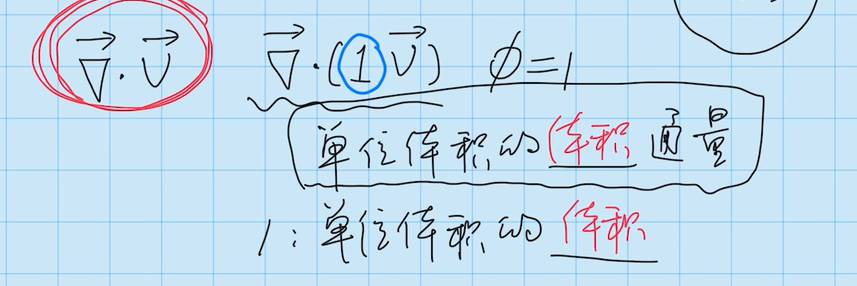 ∇⃗·V⃗ ∇⃗·(1V⃗) ϕ=1
单位体积的体积通量
1:单位体积的体积